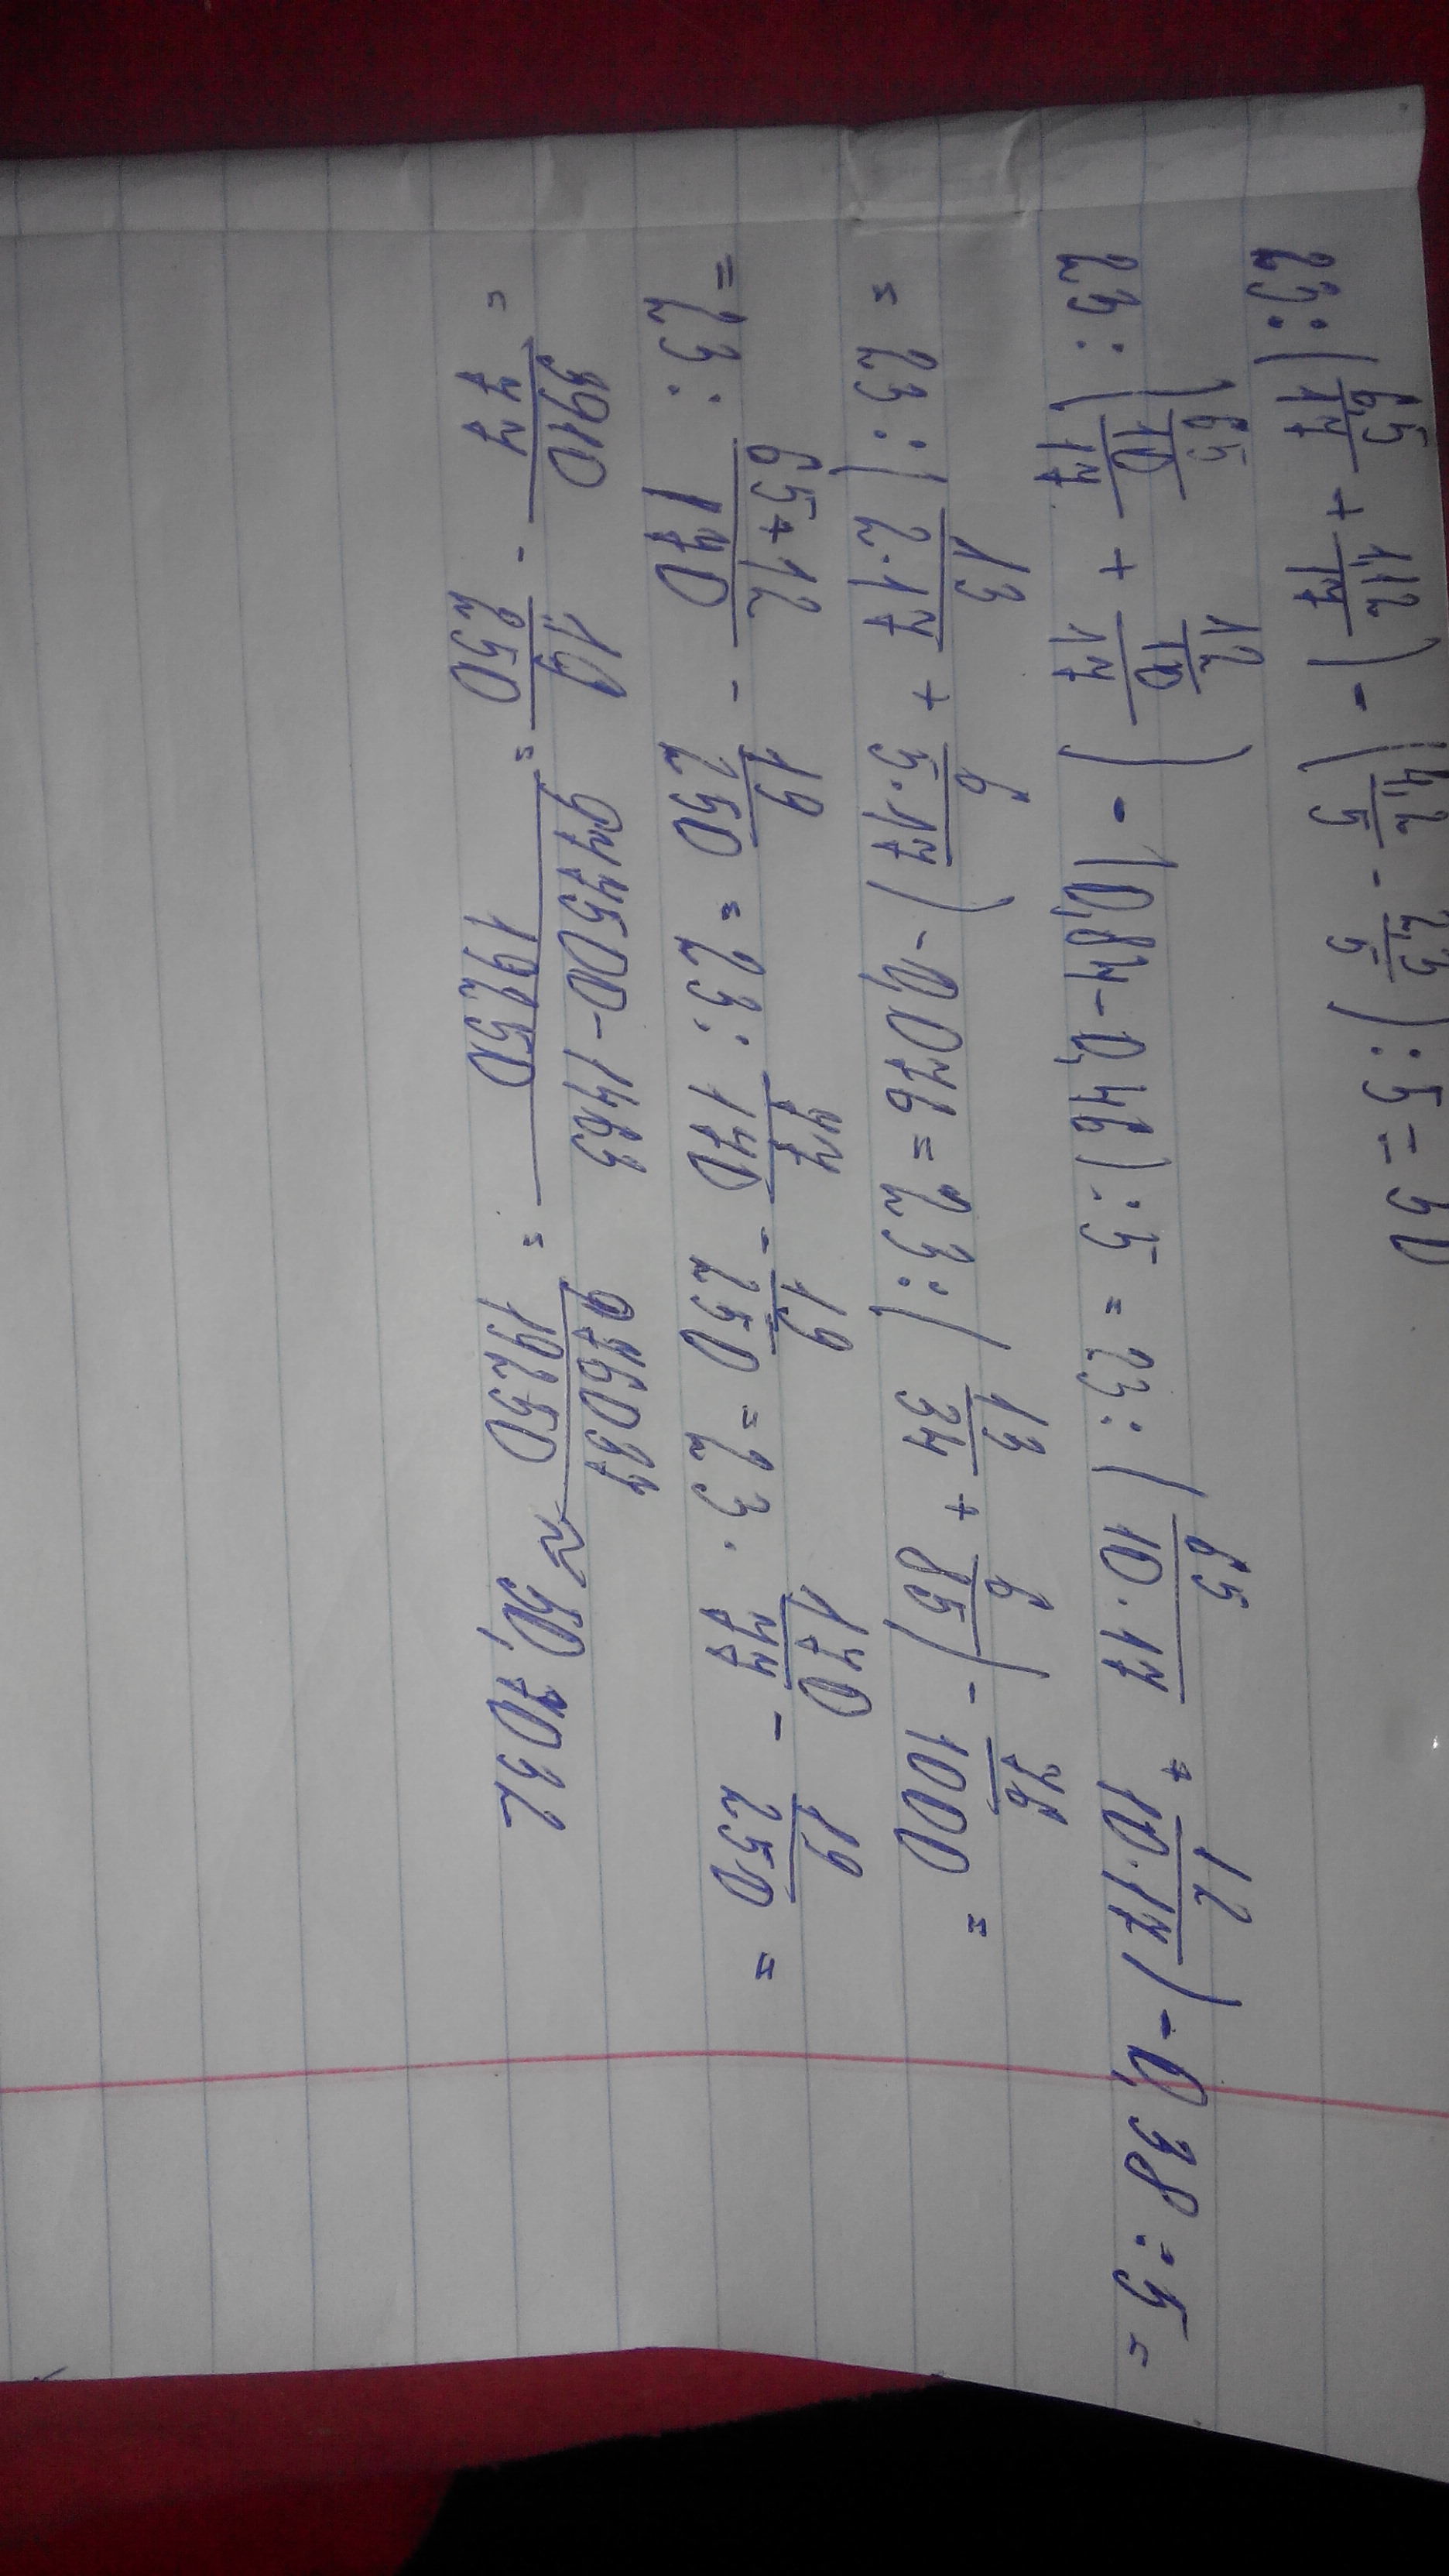 23:(6,5/17 + 1,12/17) - (4,2/5 - 2,3/5):5=50
23:(65/10/17 + 12/10/17) - (0,84-0,46):5 = 23:(65/10·17 + 12/10·17) - 0,38:5=
= 23:(13/2·17 + 6/5·17) - 0,076 = 23:(13/34 + 6/85) - 76/1000 =
= 23: 65+12/170 - 19/250 = 23: 77/170 - 19/250 = 23· 170/77 - 19/250 =
= 3910/77 - 19/250 = 977500-1463/19250 = 976037/19250 ≈ 50,7032